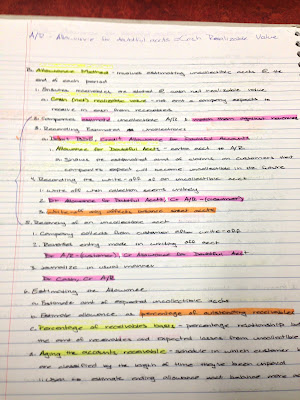 A/R - Allowance for doubtful accts = Cash Realizable Value
B. Allowance Method - involves estimating uncollectible accts @ the
end of each period
1. Ensures receivables are stated @ cash net realizable value
a. Cash (net) realizable value - net amt a company expects to
receive in cash from receivables
2. Companies estimate uncollectible A/R & match them against revenues
3. Recording Estimated Uncollectibles
a. Debt BDE, Credit Allowance for Doubtful Accounts
Allowance for Doubtful Accts - contra acct to A/R
a. Shows the estimated amt of claims on customers that
companies expect will become uncollectible in the future
4. Recording the write-off of an uncollectible acct
1. write off when collection seems unlikely
2. Dr Allowance for Doubtful Accts, Cr A/R - (customer)
3. write-off only affects balance sheet accts
5. Recovery of an uncollectible acct
1. Company collects from customer after write-off
2. Reverse entry made in writing off acct
Dr A/R - (customer), Cr Allowance for Doubtful Acct
3. Journalize in usual manner
Dr Cash Cr A/R
6. Estimating the Allowance
a. Estimate amt of expected uncollectible accts
b. Estimate allowance as percentage of outstanding receivables
c. Percentage of receivables basis - percentage relationship bet
the amt of receivables and expected losses from uncollectible
d. Aging the accounts receivable - schedule in which customer
are classified by the length of time they've been unpaid
1. Used to estimate ending allowance acct balance